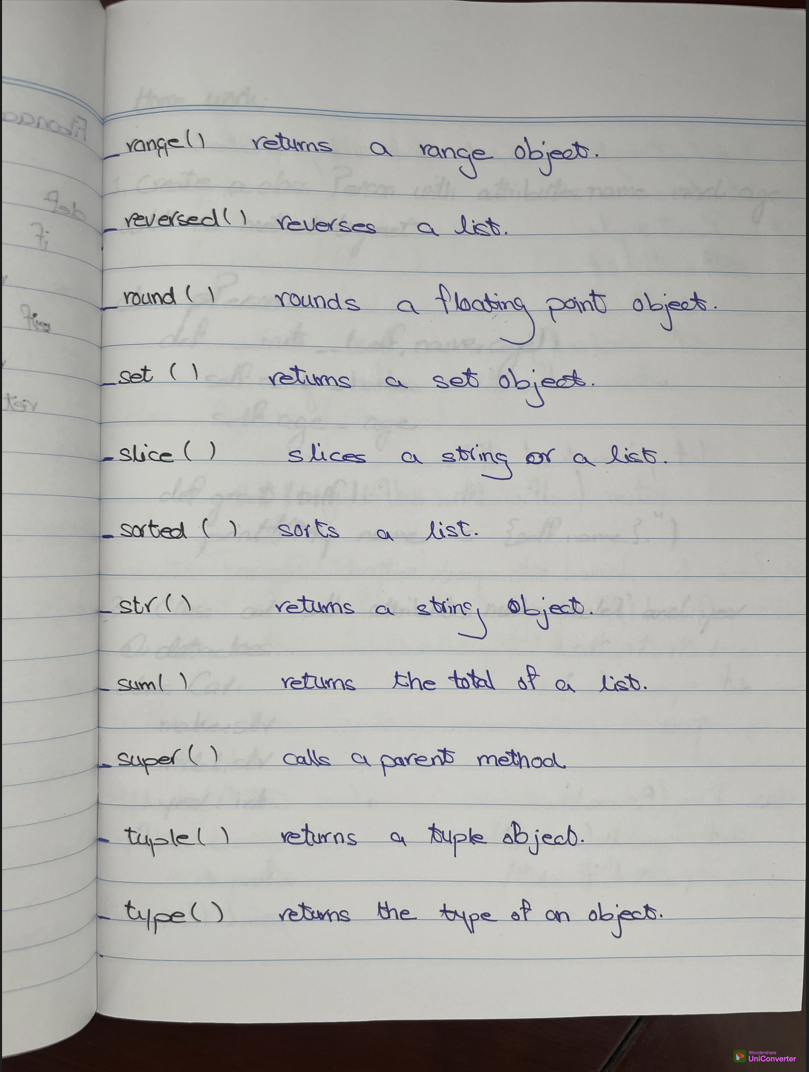 - range() returns a range object.
- reversed() reverses a list.
- round() rounds a floating point object.
- set () returns a set object.
- slice() slices a string or a list.
- sorted () sorts a list.
- str() returns a string object.
- sum() returns the total of a list.
- super() calls a parent method
- tuple() returns a tuple object.
- type() returns the type of an object.
Wondershare
UniConverter